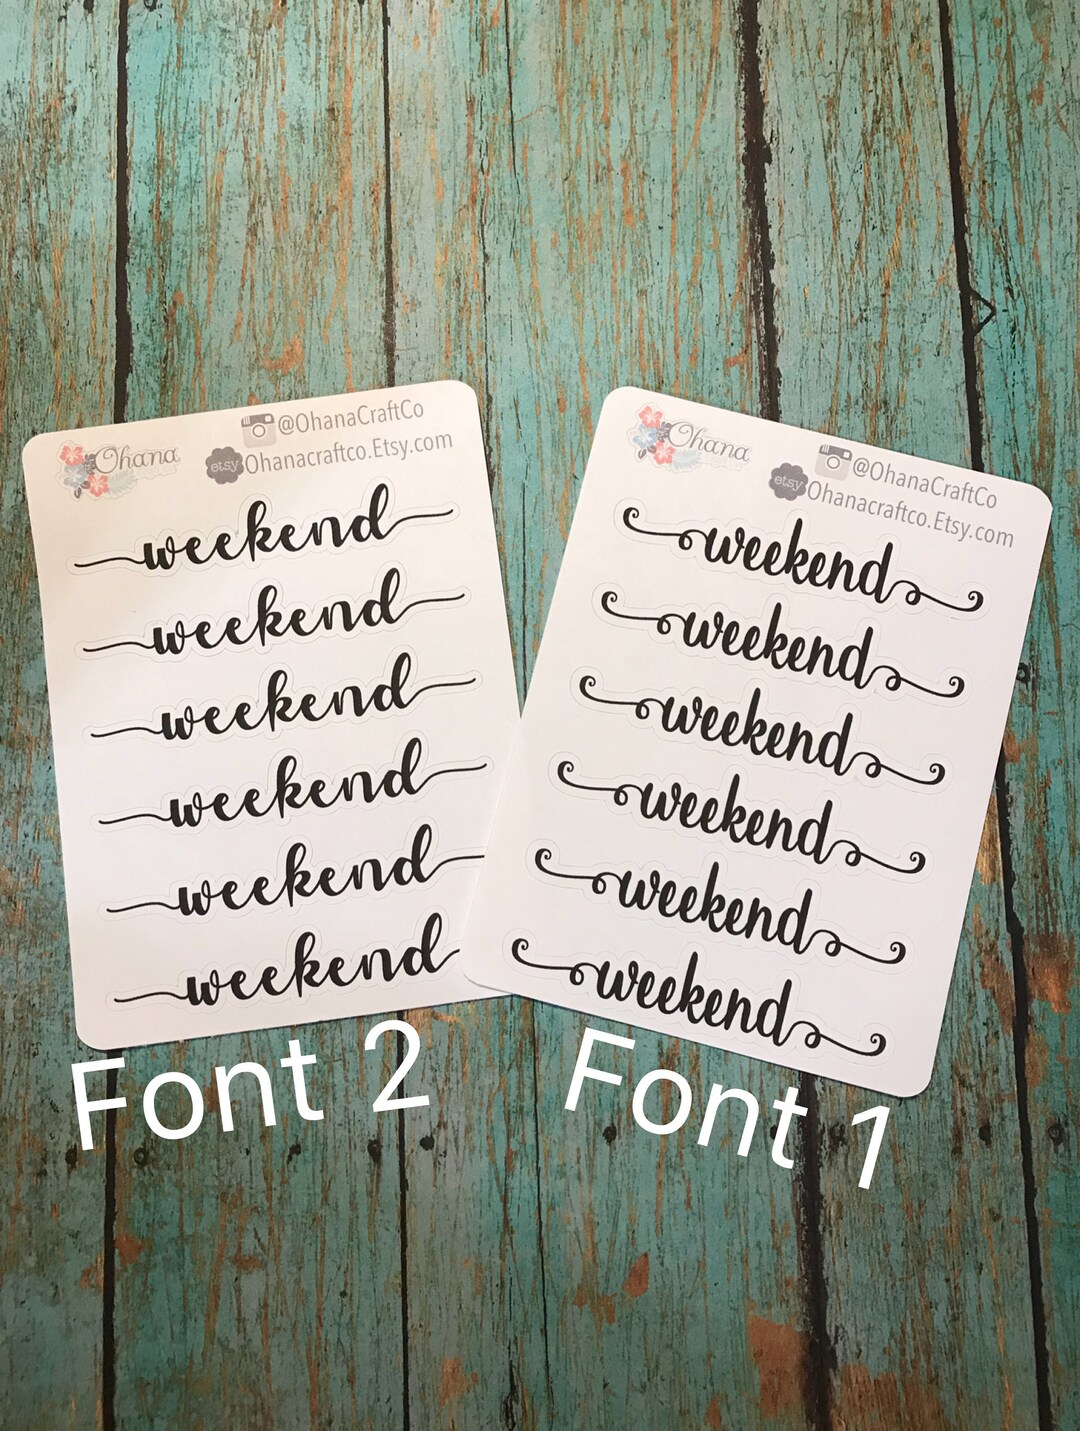 Ohana
@OhanaCraftCo
etsy Ohanacraftco.Etsy.com
weekend
weekend
weekend
weekend
weekend
weekend
Font 2
Ohana
@OhanaCraftCo
etsy Ohanacraftco.Etsy.com
weekend
weekend
weekend
weekend
weekend
weekend
Font 1